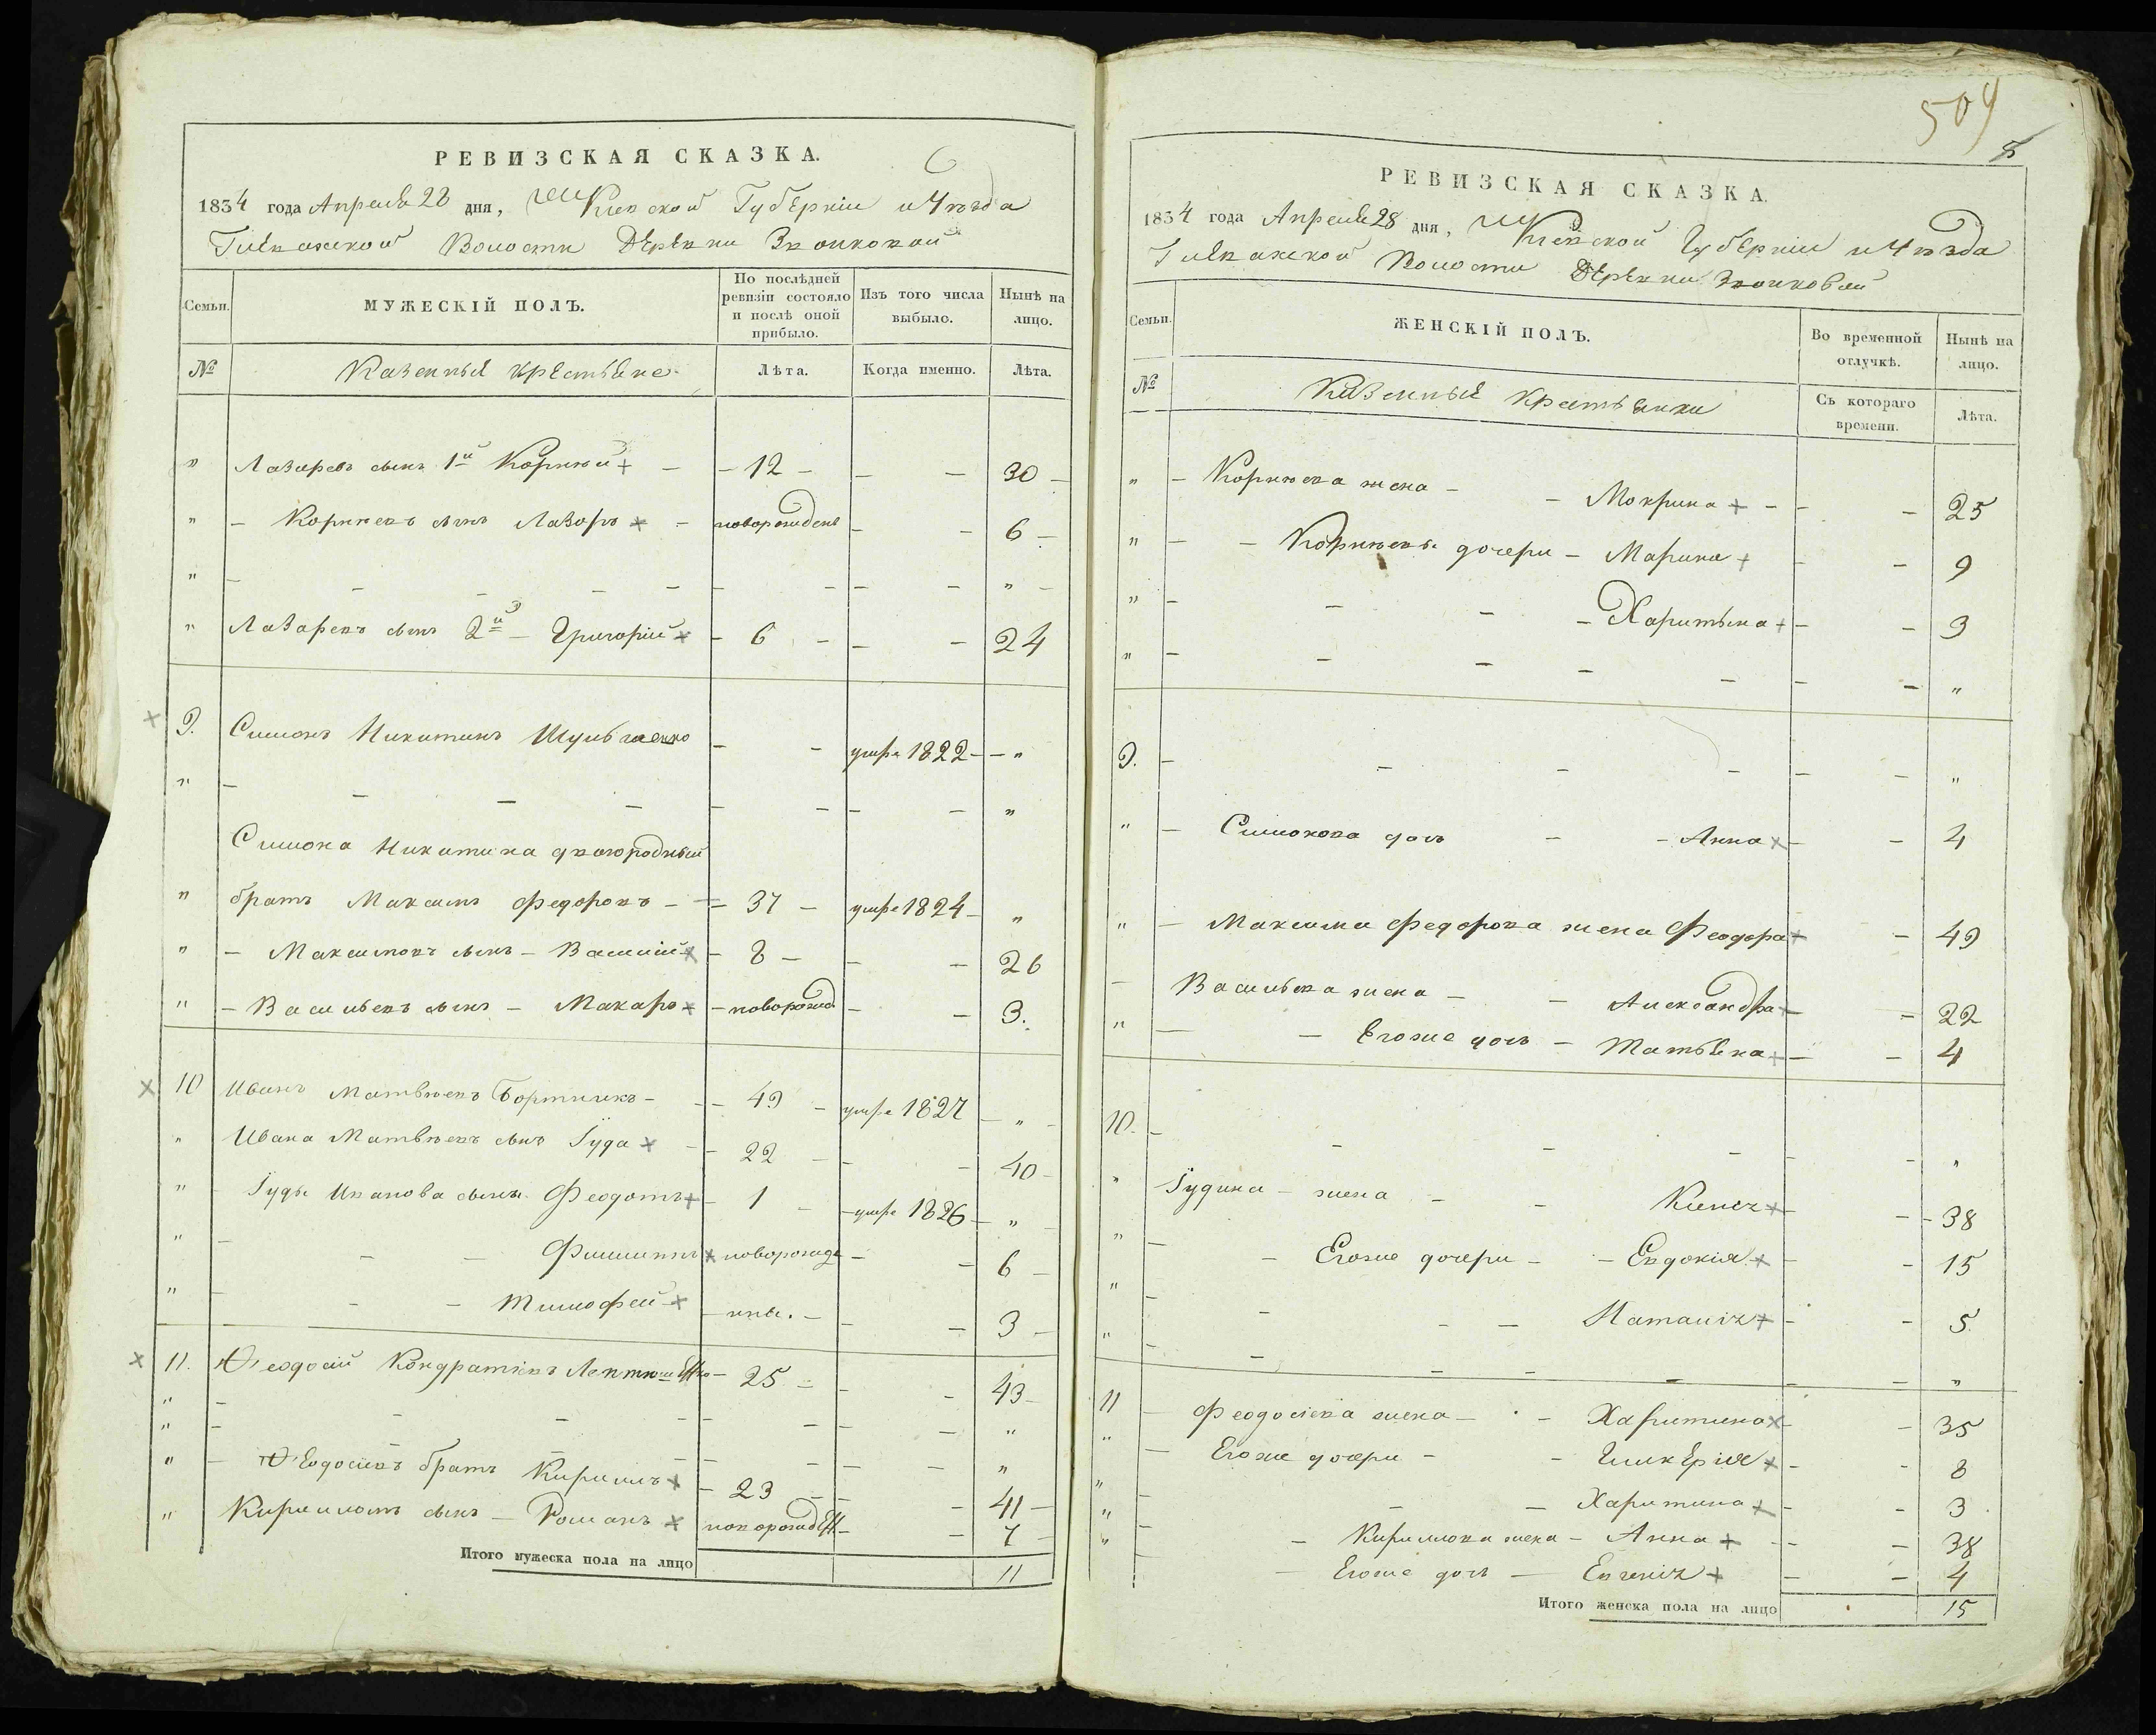 6
РЕВИЗСКАЯ СКАЗКА.
1834 года Апреля 28 дня, Кіевской Губерніи и Уѣзда
Гилеважской Волости Деревни Звонковой
Семьи.
МУЖЕСКІЙ ПОЛЪ.
По послѣдней ревизіи состояло и послѣ оной прибыло.
Изъ того числа выбыло.
Нынѣ на лицо.
№ Казенныя крестьяне Лѣта. Когда именно. Лѣта.
" Лазаревъ сынъ 1й Корнѣй + - 12 - - - 30 -
" - Корнѣевъ сынъ Лазоръ × - новорожденъ - - 6 -
" - - - - - - - - - " -
" Лазаревъ сынъ 2й - Григорій × - 6 - - - 24
× 9. Симонъ Никитинъ - - умре 1822 - - "
" - - - - - - - - "
Симона Никитина двоюродный
" братъ Максимъ Федоровъ - - 37 - умре 1824 - "
" - Максимовъ сынъ - Василій × - 8 - - - 26
" - Васильевъ сынъ - Макаръ × - новорожд - - 3.
× 10 Иванъ Матвѣевъ Бортникъ - - 49 - умре 1827 - " -
" Ивана Матвѣевъ сынъ Іуда × - - 22 - - - 40 -
" Іуды Иванова сыны Феодотъ + - 1 - - умре 1826 - " -
" - - - Филиппъ × новорожде - - 6 -
" - - - Тимофей × - - - - 3 -
× 11. Феодосій Кондратіевъ - 25 - - - 43 -
" - - - - - - - "
" - - - - - - - "
" - Феодосіевъ братъ Кирилъ × - 23 - - - 41 -
" Кириловъ сынъ - Романъ × новорожден - - 7 -
Итого мужеска пола на лицо 11
504
8
РЕВИЗСКАЯ СКАЗКА.
1834 года Апреля 28 дня, Кіевской Губерніи и Уѣзда
Гилеважской Волости Деревни Звонковой
Семьи.
ЖЕНСКІЙ ПОЛЪ.
Во временной отлучкѣ.
Нынѣ на лицо.
№ Казенныя крестьянки Съ котораго времени. Лѣта.
" - Корнѣева жена - - Мокрина + - - - 25
" - - Корнѣевы дочери - Марина + - - 9
" - - - - Харитына + - - 3
" - - - - - - - "
9. - - - - - - "
" - Симонова дочь - - Анна × - - 4
" - Максима Федорова жена Феодора + - 49
- Васильева жена - - Александра + - 22
" - - Егоже дочь - Татьяна + - - 4
10. - - - - - - "
" Іудина - жена - - - - 38
" - - Егоже дочери - - Евдокія × - - 15
" - - - - Наталія + - - 5
" - - - - - - "
11 - Феодосіева жена - - Харитина × - 35
" - Егоже дочери - - Гликерія × - - 8
" - - - Харитина + - - 3
" - - Кирилова жена - Анна + - - 38
" - - Егоже дочь - Евгенія + - - 4
Итого женска пола на лицо 15